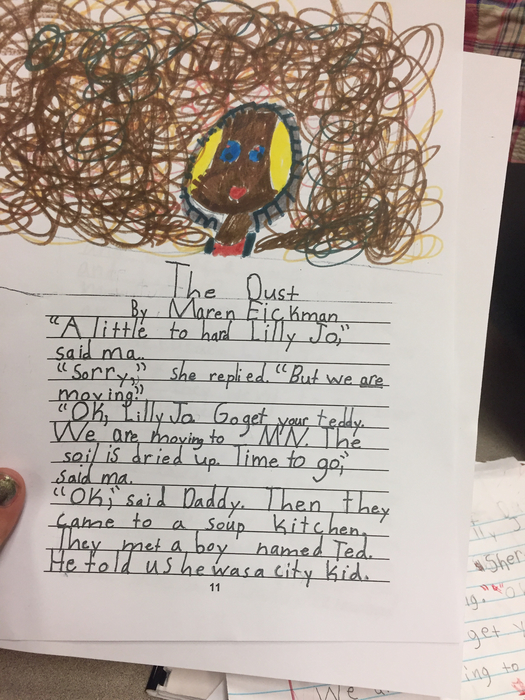 The Dust
By Maren Eickman
"A little to hard Lilly Jo,"
said ma.
"Sorry," she replied. "But we are
moving!"
"OK, Lilly Jo. Go get your teddy.
We are moving to MN. The
soil is dried up. Time to go,"
said ma.
"OK," said Daddy. Then they
came to a soup kitchen.
They met a boy named Ted.
He told us he was a city kid.
11
Sher
ng."
get y
ing to
We a